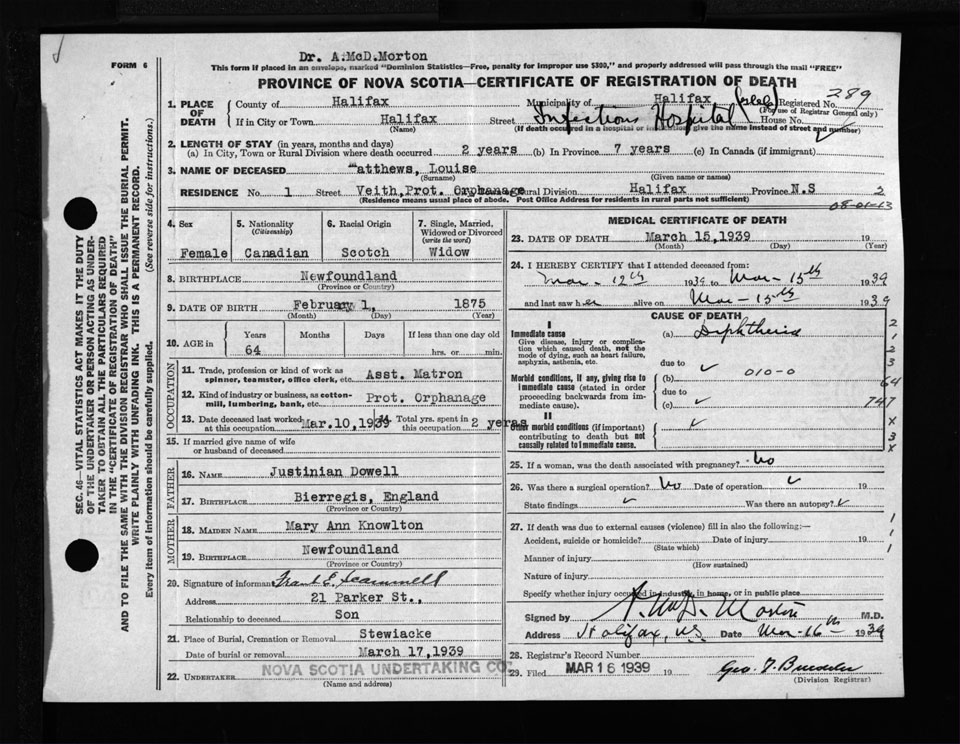 FORM 6
Dr. A.McD.Morton
This form if placed in an envelope, marked "Dominion Statistics—Free, penalty for improper use $300," and properly addressed will pass through the mail "FREE"
PROVINCE OF NOVA SCOTIA—CERTIFICATE OF REGISTRATION OF DEATH
289
1. PLACE OF DEATH
County of Halifax Municipality of Halifax Registered No.
(For use of Registrar General only)
If in City or Town Halifax Street Infectious Hospital House No.
(Name) (If death occurred in a hospital or institution give the name instead of street and number)
2. LENGTH OF STAY (in years, months and days)
(a) In City, Town or Rural Division where death occurred 2 years (b) In Province 7 years (c) In Canada (if immigrant)
3. NAME OF DECEASED Matthews, Louise
(Surname) (Given name or names)
RESIDENCE No. 1 Street Veith, Prot. Orphanage Rural Division Halifax Province N.S 2
(Residence means usual place of abode. Post Office Address for residents in rural parts not sufficient)
08-01-13
4. Sex 5. Nationality (Citizenship) 6. Racial Origin 7. Single, Married, Widowed or Divorced (write the word)
Female Canadian Scotch Widow
8. BIRTHPLACE Newfoundland
(Province or Country)
9. DATE OF BIRTH February 1, 1875
(Month) (Day) (Year)
10. AGE in Years Months Days If less than one day old
64 hrs. or min.
OCCUPATION
11. Trade, profession or kind of work as spinner, teamster, office clerk, etc. Asst. Matron
12. Kind of industry or business, as cotton-mill, lumbering, bank, etc. Prot. Orphanage
13. Date deceased last worked at this occupation Mar.10,1939 14 Total yrs. spent in this occupation 2 yeras
15. If married give name of wife or husband of deceased
FATHER
16. NAME Justinian Dowell
17. BIRTHPLACE Bierregis, England
(Province or Country)
MOTHER
18. MAIDEN NAME Mary Ann Knowlton
19. BIRTHPLACE Newfoundland
(Province or Country)
20. Signature of informant Frank E. Scammell
Address 21 Parker St.,
Relationship to deceased Son
21. Place of Burial, Cremation or Removal Stewiacke
Date of burial or removal March 17,1939
22. UNDERTAKER NOVA SCOTIA UNDERTAKING CO
(Name and address)
MEDICAL CERTIFICATE OF DEATH
23. DATE OF DEATH March 15,1939 19
(Month) (Day) (Year)
24. I HEREBY CERTIFY that I attended deceased from:
Mar - 12th 1939 to Mar - 15th 1939
and last saw her alive on Mar - 15th 1939
CAUSE OF DEATH
I
Immediate cause (a) Diphtheria
Give disease, injury or complication which caused death, not the mode of dying, such as heart failure, asphyxia, asthenia, etc.
due to
Morbid conditions, if any, giving rise to immediate cause (stated in order proceeding backwards from immediate cause). (b) 010-0
due to
(c)
II
Other morbid conditions (if important) contributing to death but not causally related to immediate cause.
2
1
2
3
64
747
X
3
X
25. If a woman, was the death associated with pregnancy? No
26. Was there a surgical operation? No Date of operation 19
State findings Was there an autopsy?
27. If death was due to external causes (violence) fill in also the following:—
Accident, suicide or homicide? Date of injury 19
(State which)
Manner of injury
(How sustained)
Nature of injury
Specify whether injury occurred in industry, in home, or in public place
1
1
1
Signed by A. McD. Morton M.D.
Address Halifax, NS Date Mar-16th 1939
28. Registrar's Record Number
29. Filed MAR 16 1939 19
(Division Registrar)
SEC. 46—VITAL STATISTICS ACT MAKES IT THE DUTY
OF THE UNDERTAKER OR PERSON ACTING AS UNDER-
TAKER TO OBTAIN ALL THE PARTICULARS REQUIRED
IN THE "CERTIFICATE OF REGISTRATION OF DEATH"
AND TO FILE THE SAME WITH THE DIVISION REGISTRAR WHO SHALL ISSUE THE BURIAL PERMIT.
WRITE PLAINLY WITH UNFADING INK. THIS IS A PERMANENT RECORD.
Every item of information should be carefully supplied. (See reverse side for instructions.)